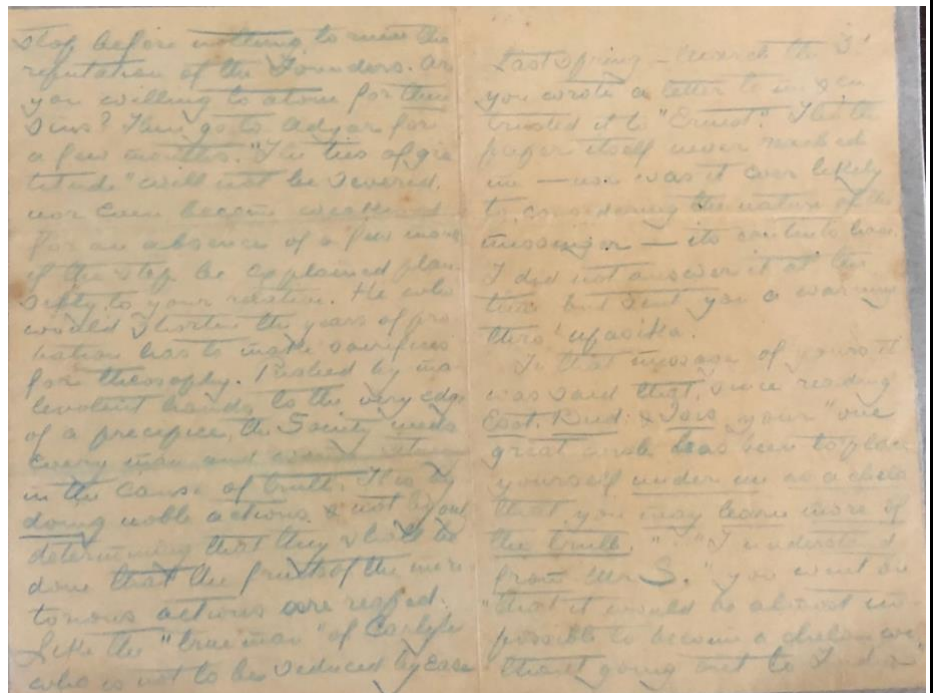 stop before nothing to ruin the
reputation of the Founders. Are
you willing to atone for their
sins? Then go to Adyar for
a few months. "The ties of gra
titude" will not be severed,
nor even become weakened
for an absence of a few months
if the step be explained plau
sibly to your relation. He who
would shorten the years of pro
bation has to make sacrifices
for theosophy. Pushed by ma
levolent hands to the very edge
of a precipice, the Society needs
every man and woman strong
in the cause of truth. It is by
doing noble actions & not by only
determining that they shall be
done that the fruits of the meri
torious actions are reaped.
Like the "true man" of Carlyle
who is not to be seduced by ease
Last spring – March the 3d
you wrote a letter to me & en
trusted it to "Ernest". Tho' the
paper itself never reached
me — nor was it ever likely
to, considering the nature of the
messenger — its contents have.
I did not answer it at the
time but sent you a warning
thro' Upasika.
In that message of yours it
was said that, since reading
Esot. Bud: & Isis your "one
great wish has been to place
yourself under me as a chela
that you may learn more of
the truth." "I understand
from Mr S." you went on
"that it would be almost im
possible to become a chela wi
thout going out to India"